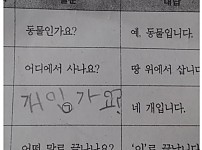 동물인가요? 예, 동물입니다.
어디에서 사나요? 땅 위에서 삽니다
개인가요? 네 개입니다.
어떤 말로 끝나나요? '이'로 끝납니다